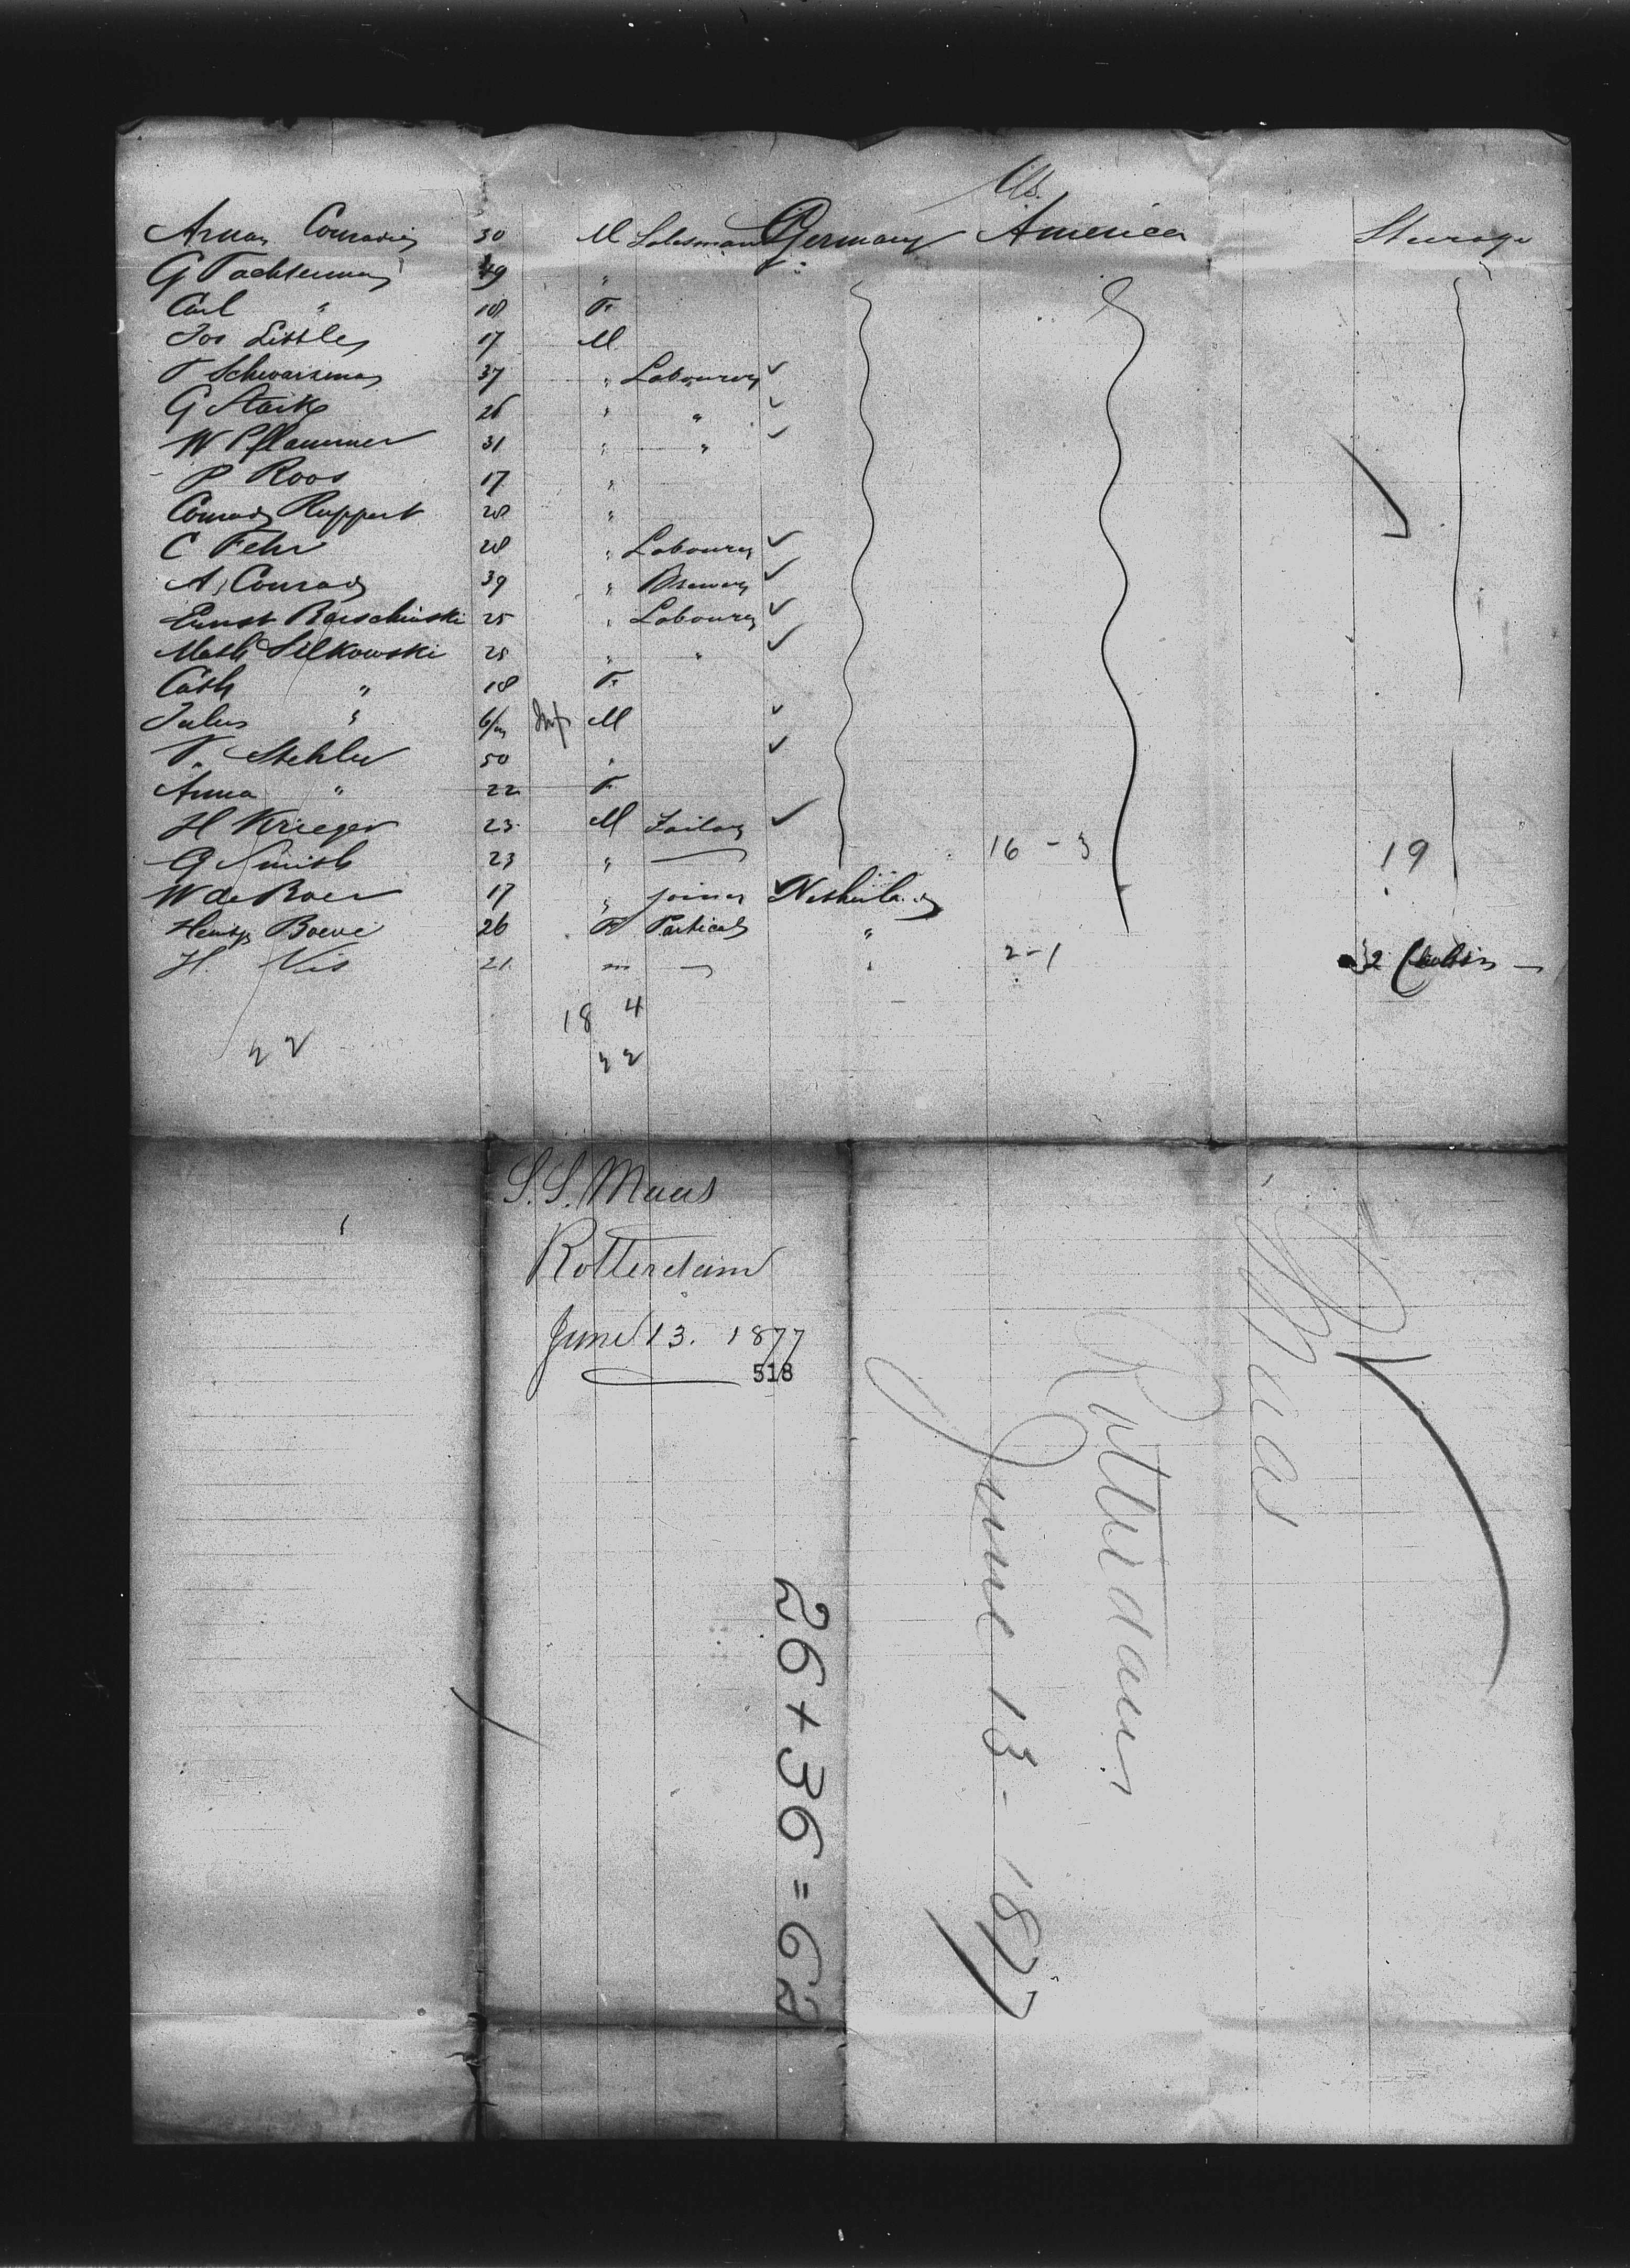 US.
30 M Salesman Germany America Steerage
G 49 "
Carl " 18 F.
Jos Little 17 M
37 " Labourer ✓
G Stark 26 " " ✓
W Pflaumer 31 " " ✓
P Roos 17 "
Conrad Ruppert 28 "
C Fehr 28 " Labourer ✓
A. Conrad 39 " Brewer ✓
Ernst 25 " Labourer ✓
Math Silkowski 25 " " ✓
Cath " 18 F.
Julius " 6/m Inf M ✓
Stehler 50 " ✓
Anna " 22 F.
H Krieger 23 M Tailor ✓
G Smith 23 " — 16 - 3 19
W de Boer 17 " joiner ✓
Boeve 26 F "
H. Vis 21 m — " 2 - 1 2 Cabin —
18 4
22 22
S.S. Maas
Rotterdam
June 13. 1877
518
26 + 36 = 62
Maas
Rotterdam
June 13 - 1877